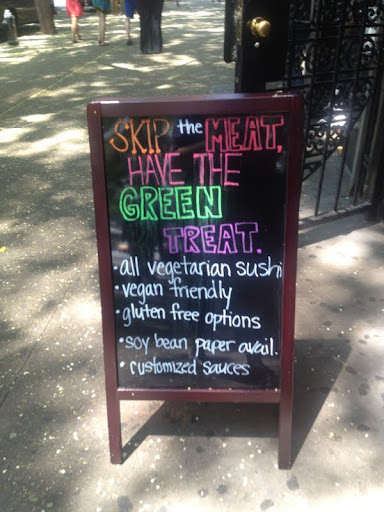 SKIP the MEAT,
HAVE THE
GREEN
TREAT.
• all vegetarian sushi
• vegan friendly
• gluten free options
• soy bean paper avail.
• customized sauces